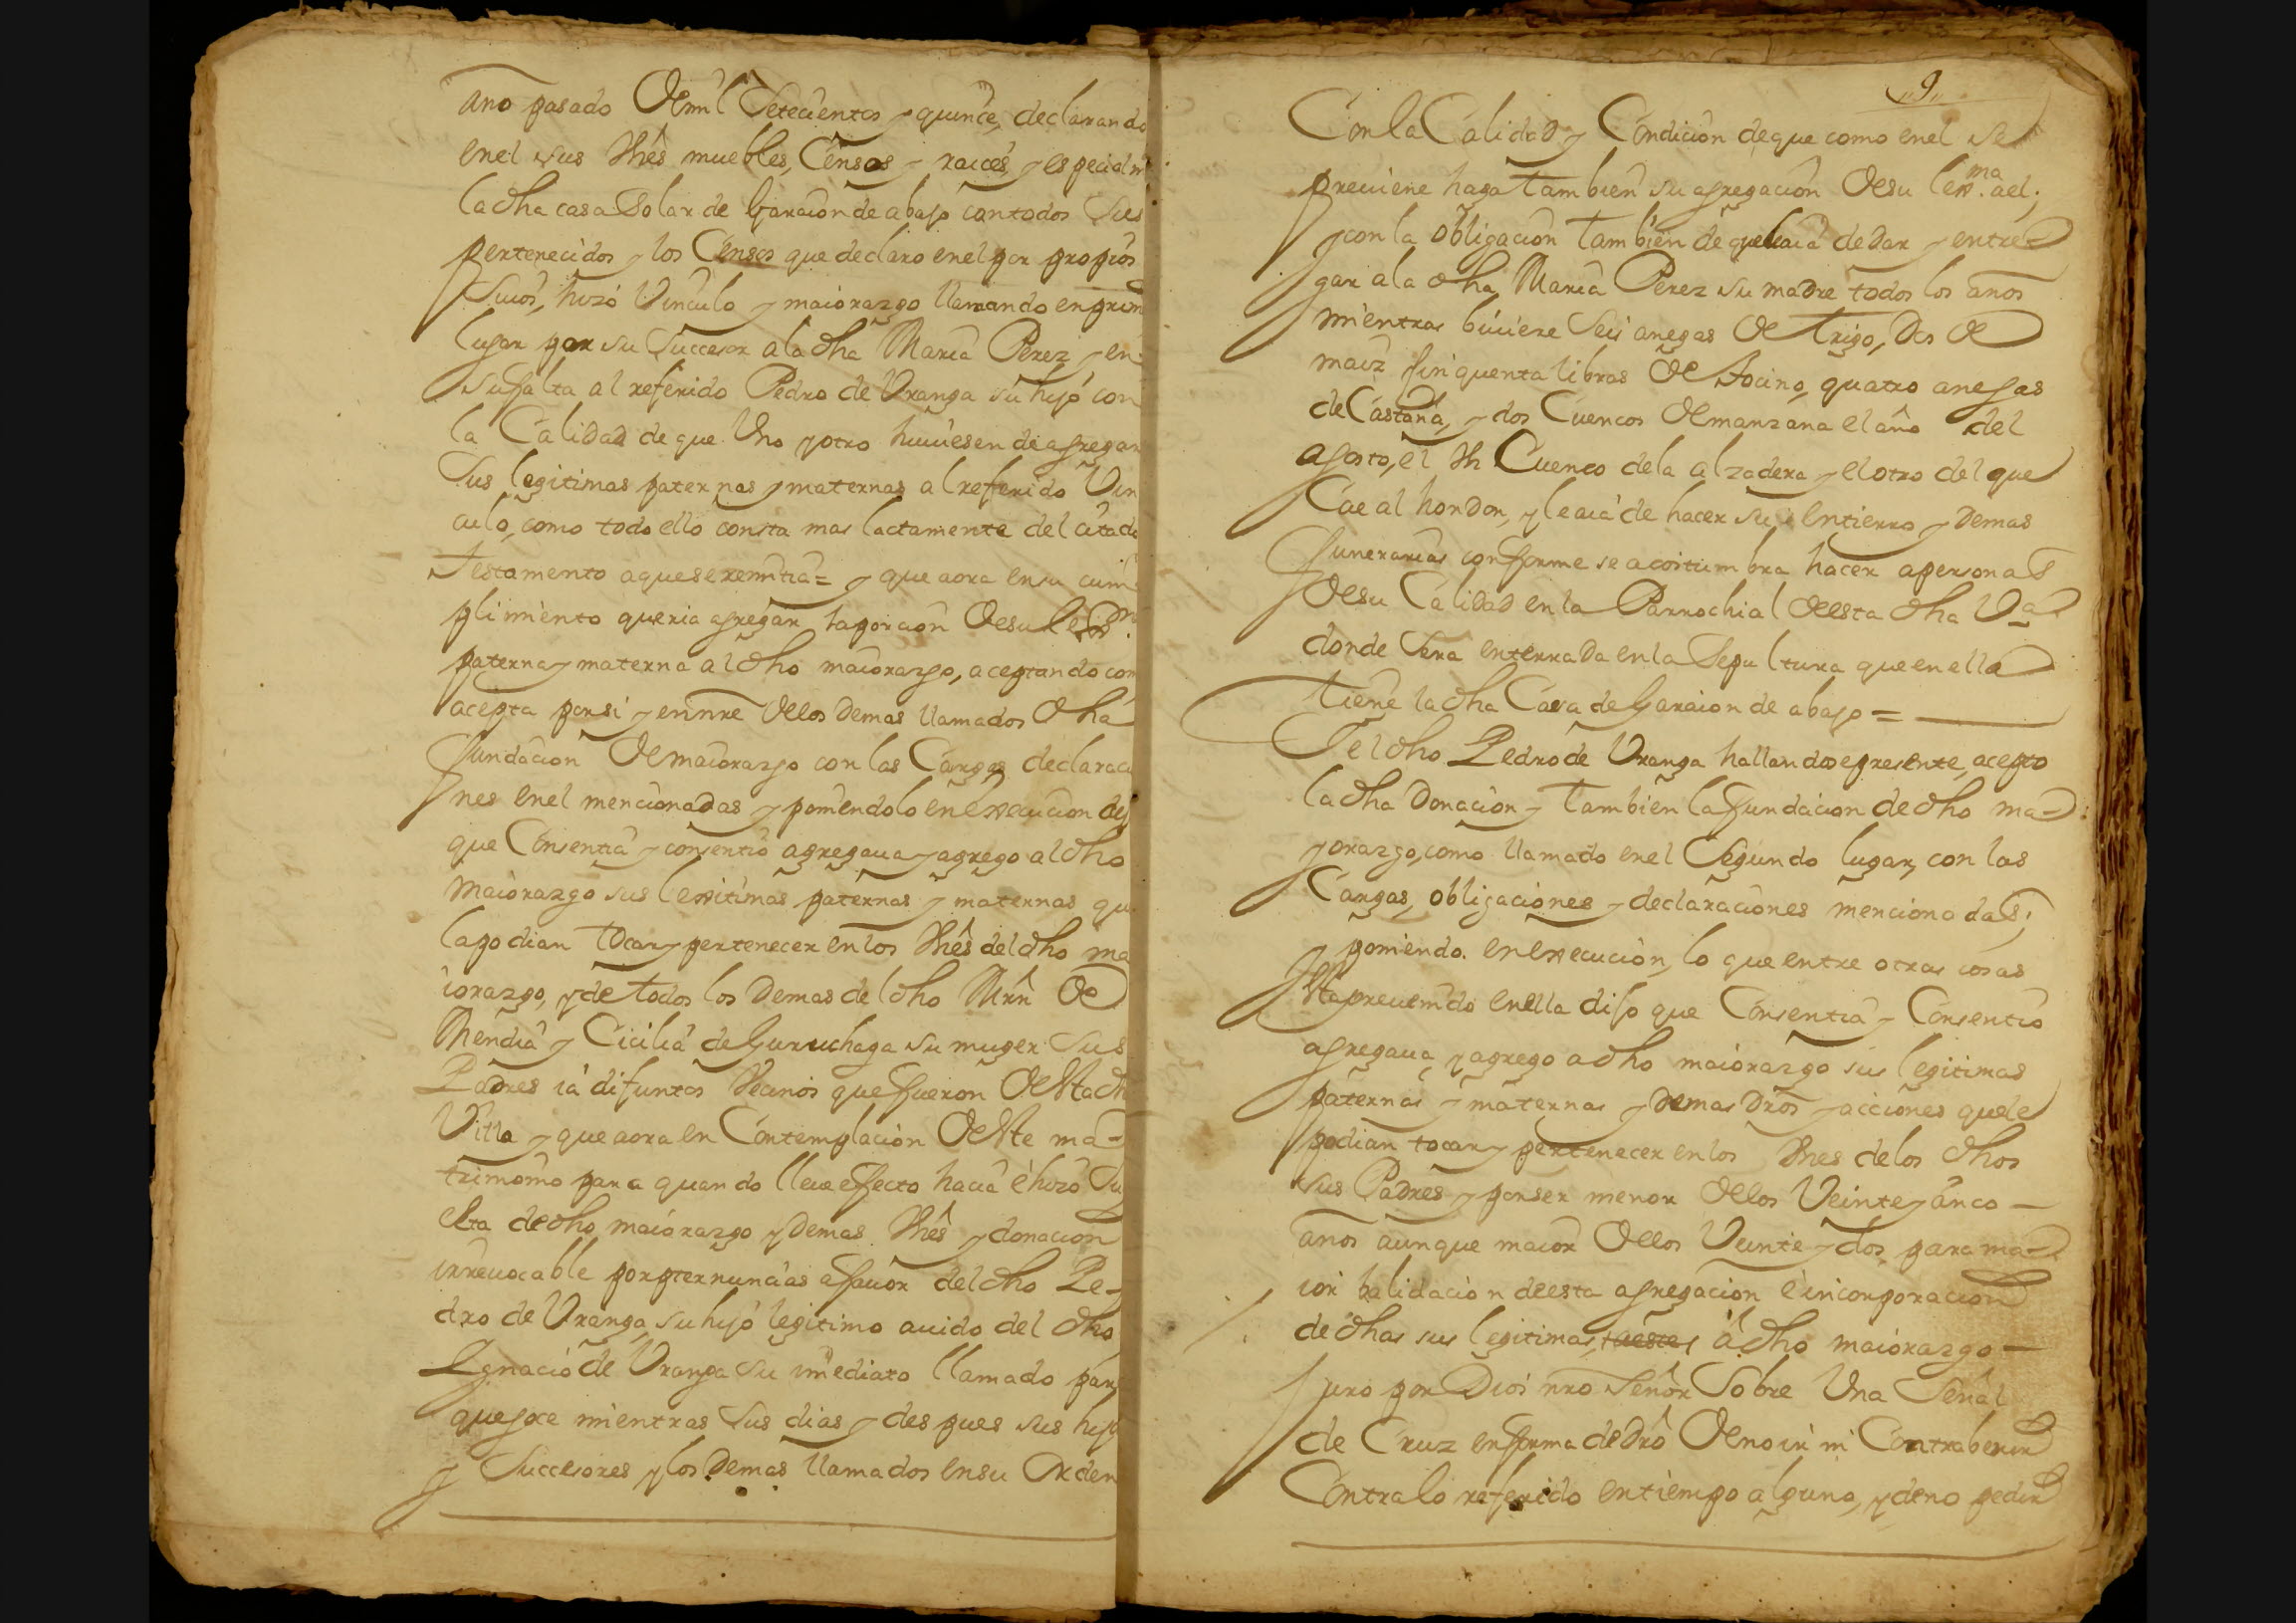 año pasado de mil Setecientos y quince, declarando
en el sus Vnês muebles, Censos y raices, y especialm
la dha casa Solar de Garaion de abajo con todos Sus
pertenecidos y los Censos que declaro en el por propios
Suios, hizo Vinculo y maiorazgo llamando en prim
lugar por su Succesor a la dha Maria Perez y en
su falta al referido Pedro de Vranga su hijo con
la Calidad de que Vno y otro huuiesen de agregar
Sus legitimas paternas y maternas al referido Vin
culo, como todo ello consta mas lactamente del citado
Testamento a que se remitia = y que aora en su cum
plimiento queria agregar la porcion de su
paterna y materna al dho maiorazgo, aceptando com
acepta por si y en nre de los demas llamados dha
fundacion de maiorazgo con las Cargas declaracio
nes en el mencionadas y poniendolo en execucion dijo
que Consentia y consentio agregaua y agrego al dho
maiorazgo sus lexitimas paternas y maternas qu
la podian tocar y pertenecer en los Vnês del dho ma
iorazgo, y de todos los demas del dho Mrn de
Mendia y Cicilia de Guruchaga su muger Sus
Padres ia difuntos Vecinos que fueron de esta dh
Villa y que aora en Contemplacion de este ma-
trimonio para quando lleue effecto hacia è hizo Su
elta de dho maiorazgo y demas Vnês y donacion
irreuocable por pternuncias a fauor del dho Pe-
dro de Vranga su hijo legitimo auido del dho
Ignacio de Vranga su imediato llamado para
que goce mientras Sus dias y despues sus hijos
y Succesores y los Demas llamados en su Orden
9
Con la Calidad y Condicion de que como en el se
preuiene haga tambien su agregacion de su lexma a el;
y con la obligacion tambien de que haia de dar y entre
gar a la dha Maria Perez su madre todos los años
mientras biuiere Seis anegas de trigo, Dos de
maiz, cinquenta libras de tocino, quatro anegas
de Castaña, y dos Cuencos de manzana el año del
agosto, el Vn Cuenco de la alzadera y el otro del que
Cae al hondon, y le aia de hacer su entierro y demas
funerarias conforme se acostumbra hacer a personas
de su Calidad en la Parrochial de esta dha Va
donde Sera enterrada en la Sepultura que en ella
tiene la dha Casa de Garaion de abajo =
Y el dho Pedro de Vranga hallandose presente, acepto
la dha Donacion y tambien la fundacion de dho ma-
yorazgo, como llamado en el Segundo lugar, con las
Cargas, obligaciones y declaraciones mencionadas;
y poniendo en execucion, lo que entre otras cosas
Sta preuenido en ella dijo que Consentia y Consentio
agregaua, y agrego a dho maiorazgo sus legitimas
paternas y maternas y demas dros y acciones que le
podian tocar y pertenecer en los Vnes de los dhos
sus Padres y por ser menor de los Veinte y cinco
años aunque maior de los Veinte y dos, para ma-
ior balidacion de esta agregacion è incorporacion
de dhas sus legitimas à dho maiorazgo
juro por Dios nro Señor Sobre Una Señal
de Cruz en forma de Drô de no ir ni Contrabenir
Contra lo referido en tiempo alguno, y de no pedir